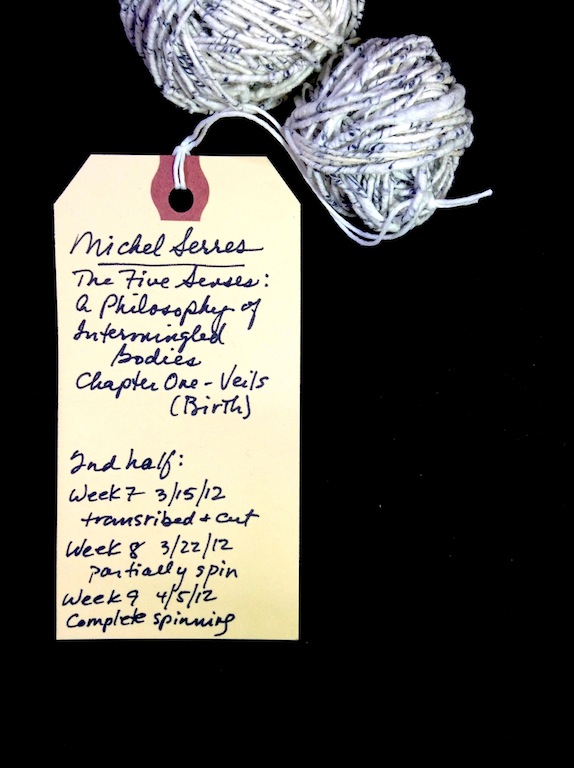 Michel Serres
The Five Senses:
A Philosophy of
Intermingled
Bodies
Chapter One - Veils
(Birth)
2nd half:
Week 7 3/15/12
transribed + cut
Week 8 3/22/12
partially spin
Week 9 4/5/12
Complete spinning